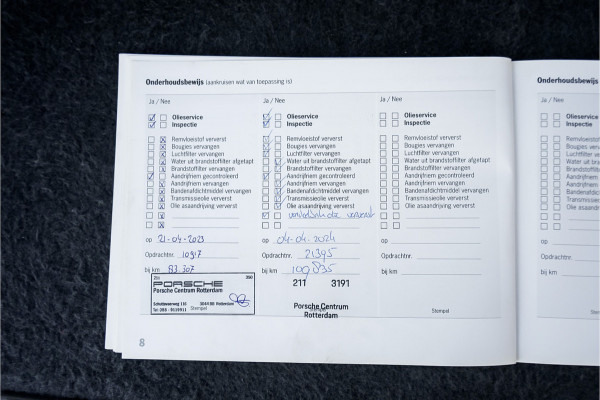 Onderhoudsbewijs (aankruisen wat van toepassing is)
Ja / Nee
Olieservice
Inspectie
Remvloeistof ververst
Bougies vervangen
Luchtfilter vervangen
Water uit brandstoffilter afgetapt
Brandstoffilter vervangen
Aandrijfriem gecontroleerd
Aandrijfriem vervangen
Bandenafdichtmiddel vervangen
Transmissieolie ververst
Olie asaandrijving ververst
op 21-04-2023
Opdrachtnr. 10917
bij km 83.307
PORSCHE
Porsche Centrum Rotterdam
Stempel
Ja / Nee
Olieservice
Inspectie
Remvloeistof ververst
Bougies vervangen
Luchtfilter vervangen
Water uit brandstoffilter afgetapt
Brandstoffilter vervangen
Aandrijfriem gecontroleerd
Aandrijfriem vervangen
Bandenafdichtmiddel vervangen
Transmissieolie ververst
Olie asaandrijving ververst
ververst
op 04-04-2024
Opdrachtnr. 21395
bij km 109835
211 3191
Porsche Centrum
Rotterdam
Ja / Nee
Olieservice
Inspectie
Remvloeistof ververst
Bougies vervangen
Luchtfilter vervangen
Water uit brandstoffilter afgetapt
Brandstoffilter vervangen
Aandrijfriem gecontroleerd
Aandrijfriem vervangen
Bandenafdichtmiddel vervangen
Transmissieolie ververst
Olie asaandrijving ververst
op
Opdrachtnr.
bij km
Stempel
8
Onderhoudsbewijs
Ja / Nee
Olieservice
Inspectie
op
Opdrachtnr.
bij km